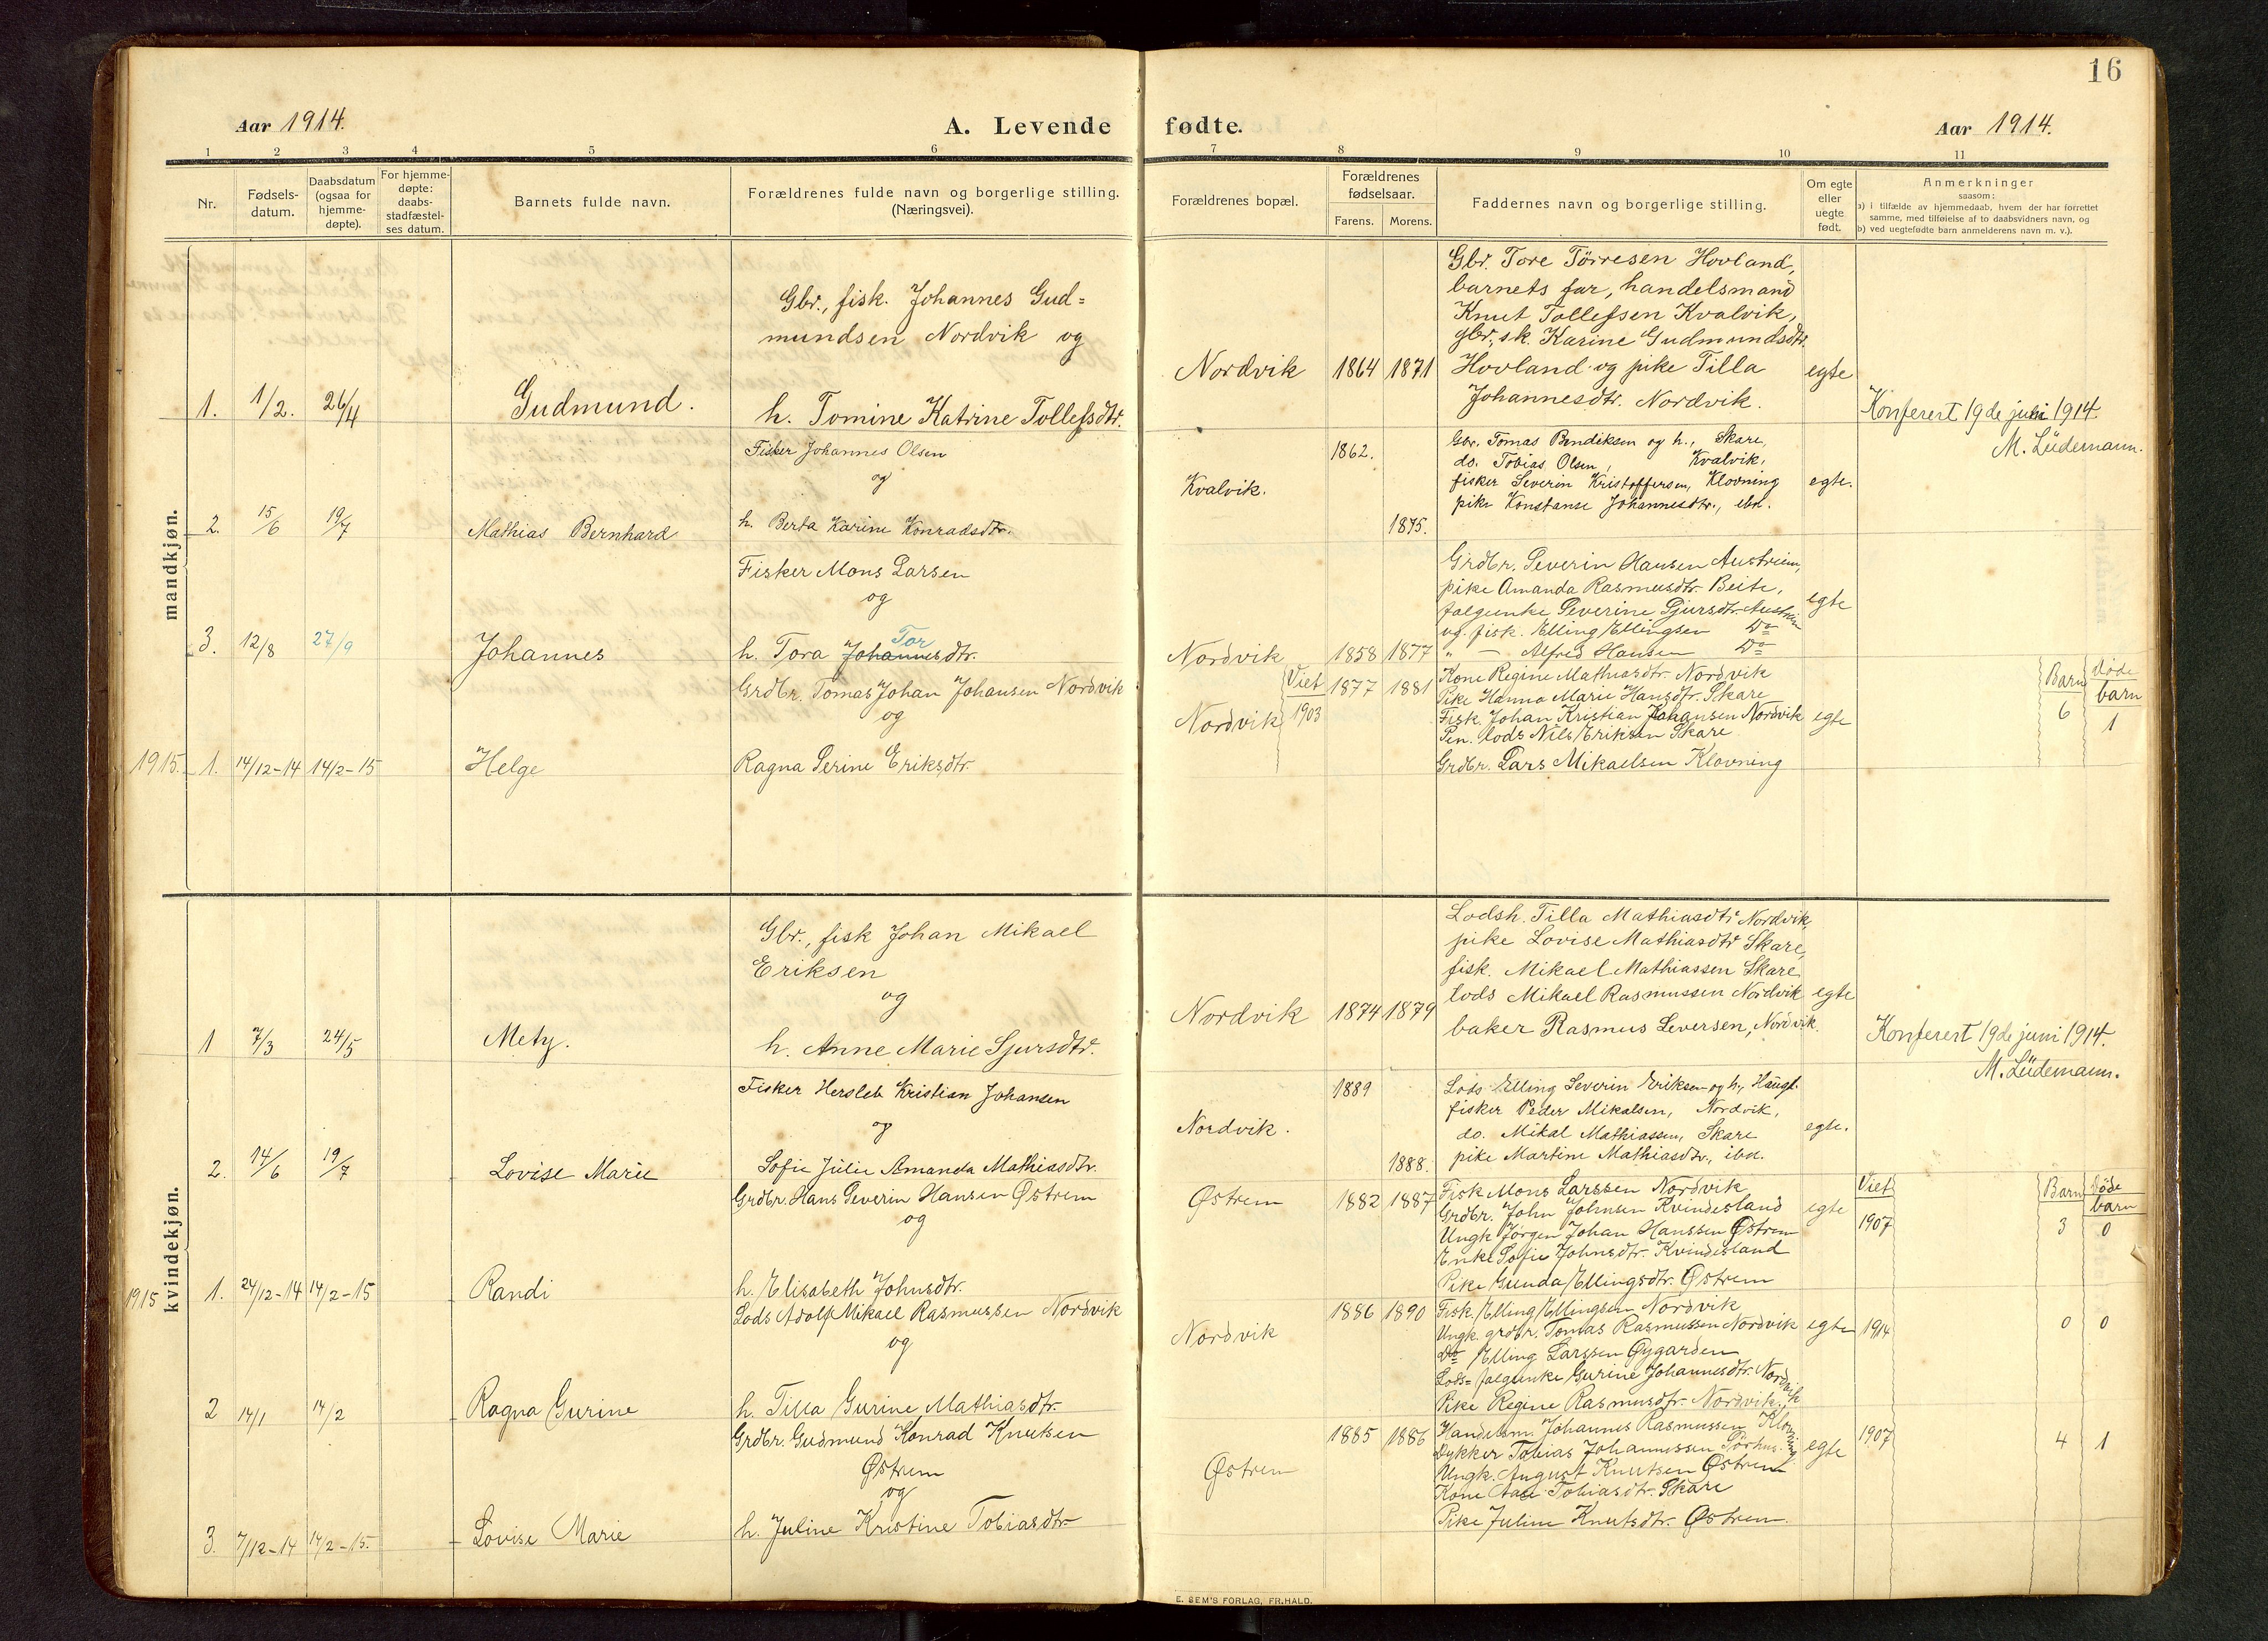 16
Aar 1914.
A. Levende fødte.
Aar 1914.
1 2 3 4 5 6 7 8 9 10 11
Nr.
Fødsels-
datum.
Daabsdatum
(ogsaa for
hjemme-
døpte).
For hjemme-
døpte:
daabs-
stadfæstel-
ses datum.
Barnets fulde navn.
Forældrenes fulde navn og borgerlige stilling.
(Næringsvei).
Forældrenes bopæl.
Forældrenes
fødselsaar.
Farens. Morens.
Faddernes navn og borgerlige stilling.
Om egte
eller
uegte
født.
Anmerkninger
saasom:
a) i tilfælde av hjemmedaab, hvem der har forrettet
samme, med tilføielse af to daabsvidners navn, og
b) ved uegtefødte barn anmelderens navn m. v.).
mandkjøn.
1. 1/2. 26/4 Gudmund.
Gbr., fisk. Johannes Gud=
mundsen Nordvik og
h. Tomine Katrine Tollefsdtr.
Nordvik 1864 1871
Gbr. Tore Törresen Hovland,
barnets far, handelsmand
Knut Tollefsen Kvalvik,
gbr, sk. Karine Gudmundsdtr.
Hovland og pike Tilla
Johannesdtr. Nordvik.
egte
Konferert 19de juni 1914.
M. Lüdemann.
2. 15/6 19/7 Mathias Bernhard
Fisker Johannes Olsen
og
h. Berta Karine Konradsdtr.
Kvalvik. 1862. 1875.
Gbr. Tomas Bendiksen og h., Skare,
do. Tobias Olsen, Kvalvik,
fisker Severin Kristoffersen, Klovning
pike Konstanse Johannesdtr., ibd.
egte.
3. 12/8 27/9 Johannes
Fisker Mons Larsen
og
Tor
h. Tora Johannesdtr.
Nordvik 1858 1877
Grdbr. Severin Hansen Austreim,
pike Amanda Rasmusdtr. Beite,
følgenke Severine Gjursdtr. Austreim
ug. fisk. Elling Ellingsen Do
" — Alfred Hansen Do
egte
1915. 1. 14/12-14 14/2-15 Helge
Grdbr. Tomas Johan Johansen Nordvik
og
Ragna Serine Eriksdtr.
Nordvik
Viet
1903
1877 1881
Kone Regine Mathiasdtr. Nordvik
Pike Hanna Marie Hansdtr. Skare
Fisk. Johan Kristian Johansen Nordvik
Pen. lods Nils Eriksen Skare
Grdbr. Lars Mikaelsen Klovning
egte
Barn
6
Døde
barn
1
kvindekjøn.
1 7/3 24/5 Mety.
Gbr., fisk Johan Mikael
Eriksen
og
h. Anne Marie Sjursdtr.
Nordvik 1874 1879
Lodsh. Tilla Mathiasdtr Nordvik,
pike Lovise Mathiasdtr Skare,
fisk. Mikael Mathiassen Skare
lods Mikael Rasmussen Nordvik
baker Rasmus Leversen, Nordvik.
egte
Konferert 19de juni 1914.
M. Lüdemann.
2. 14/6 19/7 Lovise Marie
Fisker Hersleb Kristian Johansen
og
Sofie Julie Amanda Mathiasdtr.
Nordvik. 1889 1888.
Lods Elling Severin Eriksen og h., Haugl.
fisker Peder Mikalsen, Nordvik,
do. Mikal Mathiassen, Skare
pike Martine Mathiasdtr., ibd.
egte.
1915 1. 24/12-14 14/2-15 Randi
Grdbr. Hans Severin Hansen Østrem
og
h. Elisabeth Johnsdtr.
Østrem 1882 1887
Fisk Mons Larssen Nordvik
Grdbr. John Johnsen Kvindesland
Ungk. Jørgen Johan Hanssen Østrem
Enke Sofie Johnsdtr. Kvindesland
Pike Gunda Ellingsdtr. Østrem
egte
Viet
1907
Barn
3
Døde
barn
0
2 14/1 14/2 Ragna Gurine
Lods Adolf Mikael Rasmussen Nordvik
og
h. Tilla Gurine Mathiasdtr.
Nordvik 1886 1890
Fisk. Elling Ellingsen Nordvik
Ungk. grdbr. Tomas Rasmussen Nordvik
Do Elling Larssen Øygarden
Lods= følgenke Gurine Johannesdtr. Nordvik
Pike Regine Rasmusdtr. Nordvik
egte 1914 0 0
3. 7/12-14 14/2-15. Lovise Marie
Grdbr. Gudmund Konrad Knutsen
Østrem
og
h. Juline Kristine Tobiasdtr
Østrem 1885 1886
Handelsm. Johannes Rasmussen Klovning
Dykker Tobias Johannessen Sørhus.
Ungk. August Knutsen Østrem
Kone Aase Tobiasdtr. Skare
Pike Juline Knutsdtr. Østrem.
egte 1907 4 1
E. SEM'S FORLAG, FR.HALD.